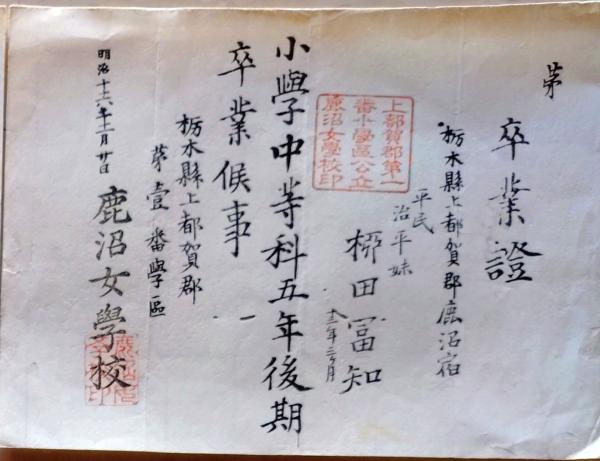 第
卒業證
栃木縣上都賀郡鹿沼宿
平民
治平妹
柳田冨知
十三年三ヶ月
上都賀郡第一
番小學區公立
鹿沼女學校印
小學中等科五年後期
卒業候事
栃木縣上都賀郡
第壹番學區
鹿沼女學校
明治十六年十二月廿日